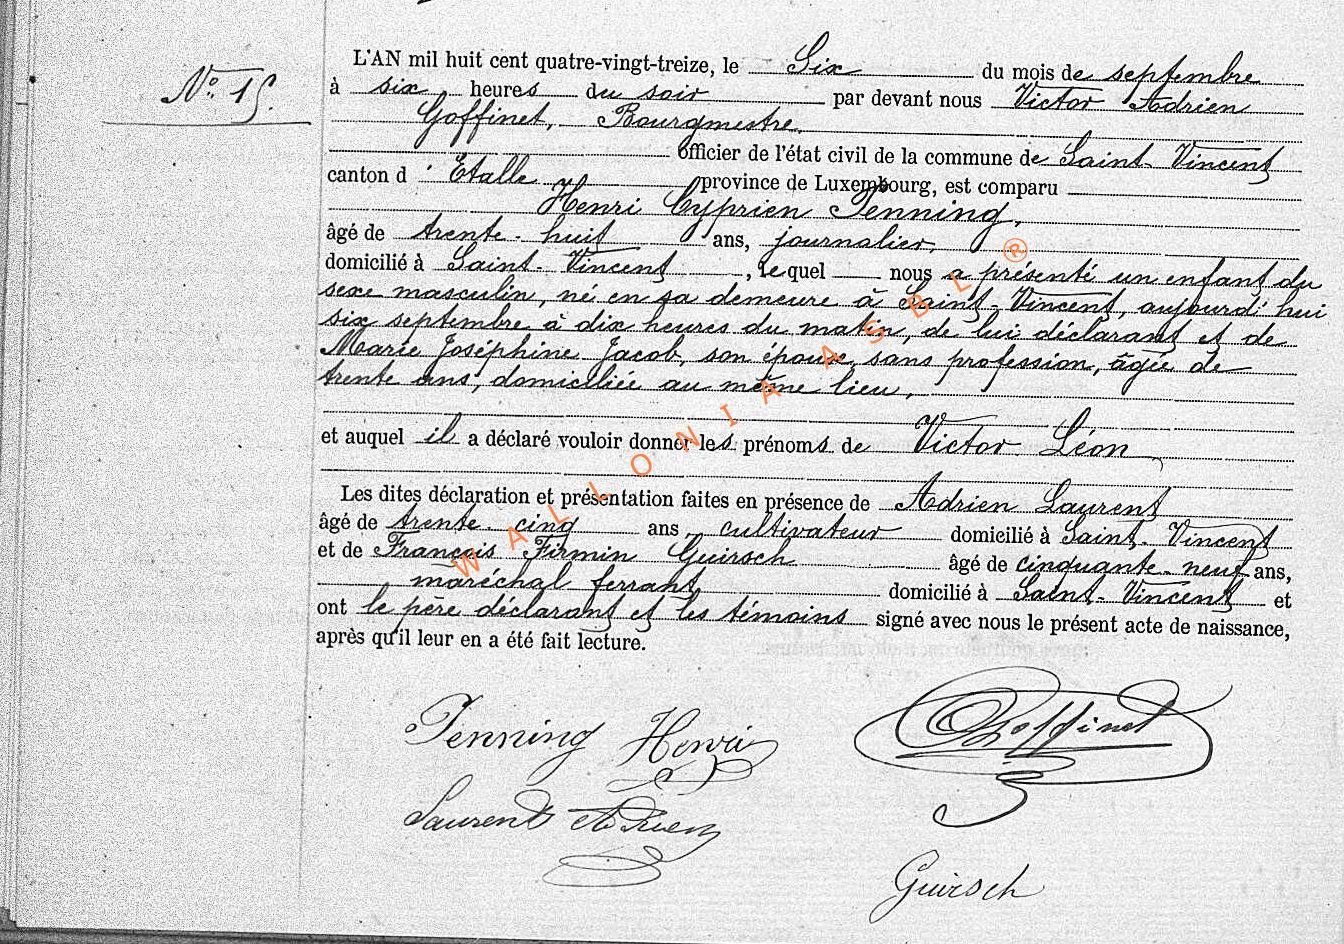 L'AN mil huit cent quatre-vingt-treize, le Six du mois de septembre
N° 15.
à six heures du soir par devant nous Victor Adrien
Goffinet, Bourgmestre
officier de l'état civil de la commune de Saint-Vincent
canton d'Etalle province de Luxembourg, est comparu
Henri Cyprien Penning,
âgé de trente-huit ans, journalier,
domicilié à Saint-Vincent, lequel nous a présenté un enfant du
sexe masculin, né en sa demeure à Saint-Vincent, aujourd'hui
six septembre à dix heures du matin, de lui déclarant et de
Marie Joséphine Jacob, son épouse, sans profession, âgée de
trente ans, domiciliée au même lieu,
et auquel il a déclaré vouloir donner les prénoms de Victor Léon
Les dites déclaration et présentation faites en présence de Adrien Laurent
âgé de trente-cinq ans, cultivateur domicilié à Saint-Vincent
et de François Firmin Guirsch âgé de cinquante-neuf ans,
maréchal ferrant domicilié à Saint-Vincent et
ont le père déclarant et les témoins signé avec nous le présent acte de naissance,
après qu'il leur en a été fait lecture.
Penning Henri
Goffinet
Laurent Adrien
Guirsch
WALLONIA ASBL ®